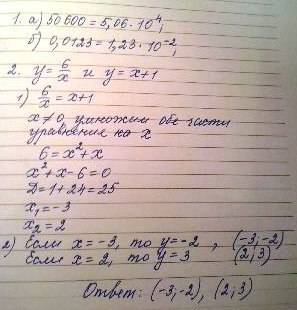 1. а) 50 600 = 5,06 · 10⁴;
б) 0,0123 = 1,23 · 10⁻²;
2. y = 6/x и y = x+1
1) 6/x = x+1
x ≠ 0, умножим обе части
уравнения на x
6 = x² + x
x² + x - 6 = 0
D = 1 + 24 = 25
x₁ = -3
x₂ = 2
2) Если x = -3, то y = -2 , (-3; -2)
Если x = 2, то y = 3 (2; 3)
Ответ: (-3; -2), (2; 3)